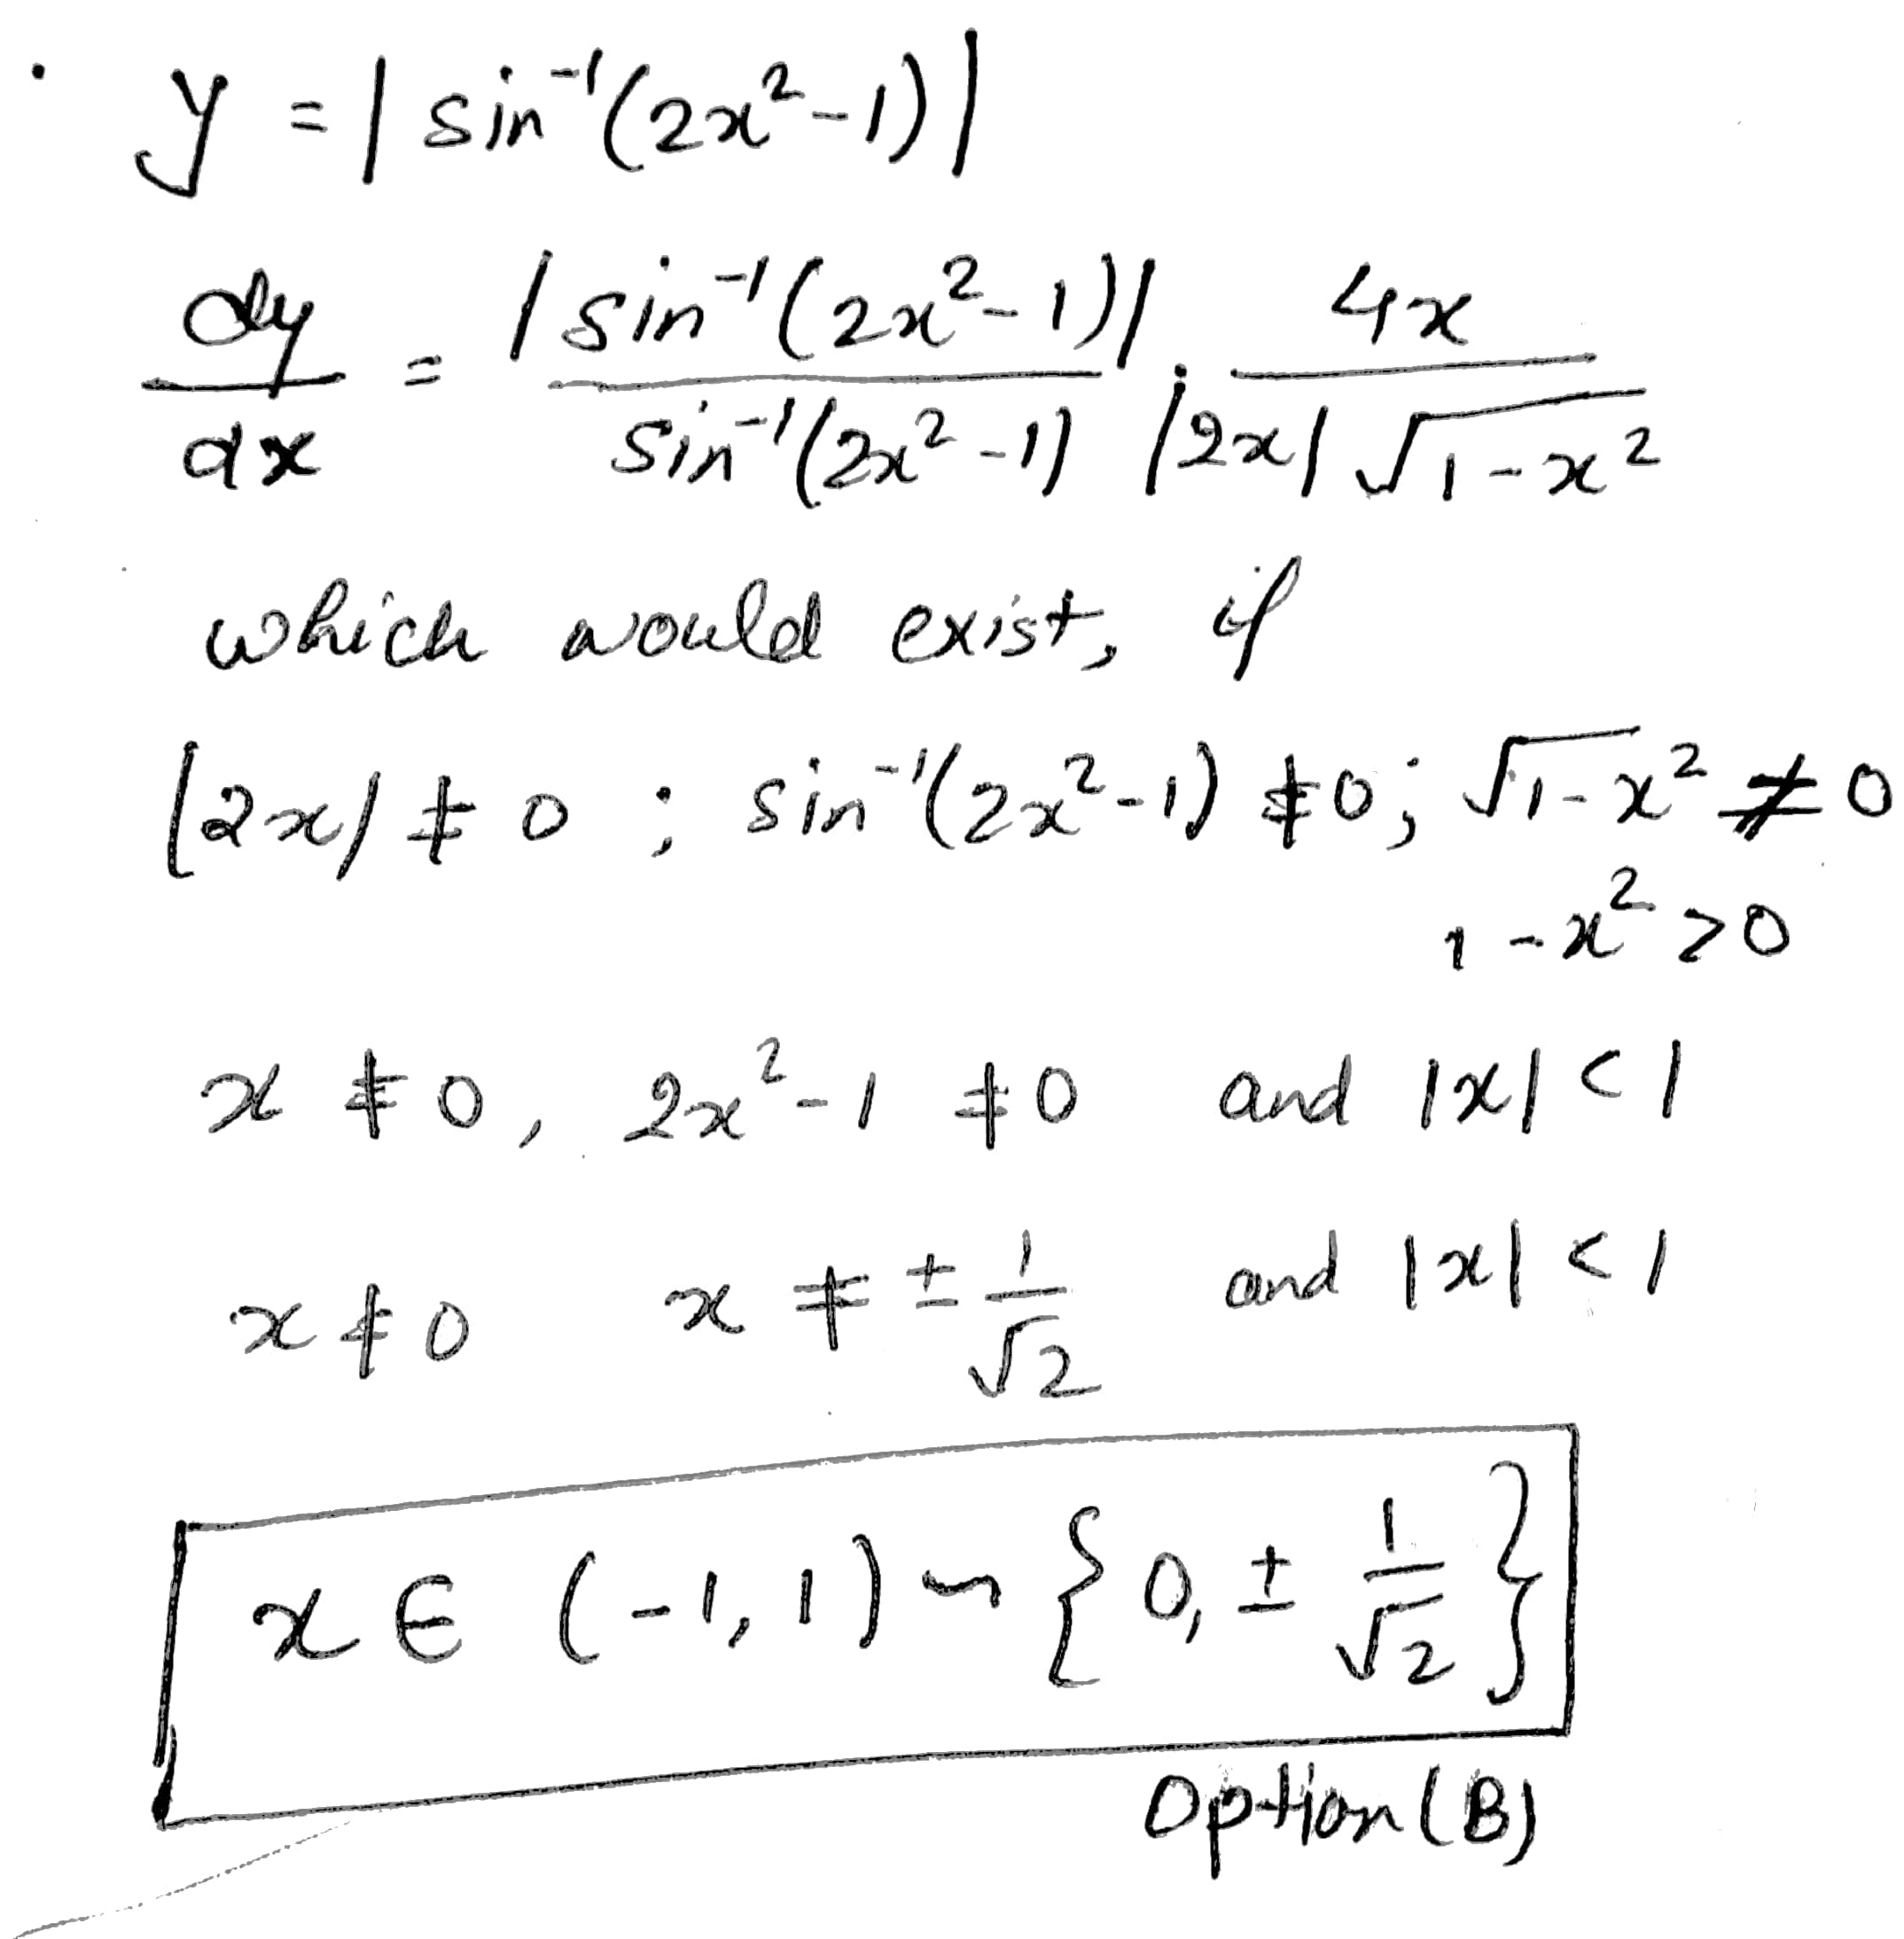 y = | sin⁻¹(2x²-1)|
dy/dx = |sin⁻¹(2x²-1)|/sin⁻¹(2x²-1) . 4x/|2x|√1-x²
which would exist, if
|2x| ≠ 0 ; sin⁻¹(2x²-1) ≠ 0; √1-x² ≠ 0
1-x² >0
x ≠ 0, 2x²-1 ≠ 0 and |x| < 1
x ≠ 0 x ≠ ± 1/√2 and |x| < 1
x ∈ (-1, 1) ~ {0, ± 1/√2}
Option (B)